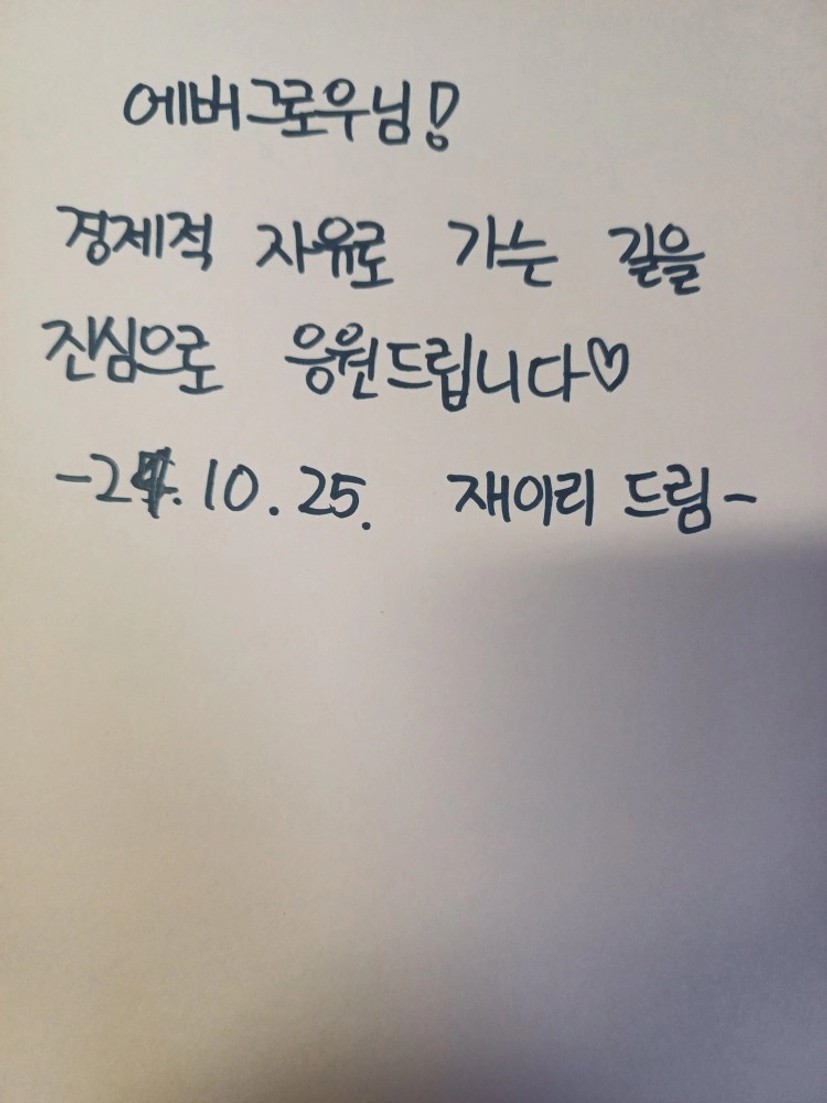 에버그로우님!
경제적 자유로 가는 길을
진심으로 응원드립니다♡
-24.10.25. 재이리 드림-